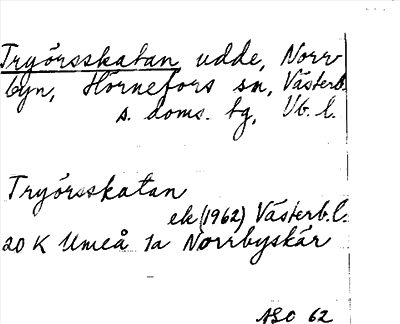 Tryörsskatan, udde, Norr
byn, Hörnefors sn, Västerb.
s. doms. tg, Vb. l.
Tryörsskatan
ek (1962) Västerb. l.
20 K Umeå 1a Norrbyskär
ASO 62